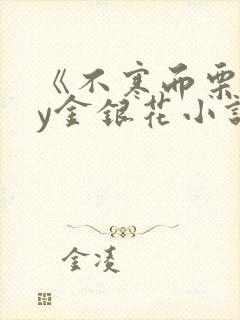 《不寒而栗
y金银花小说
金凌